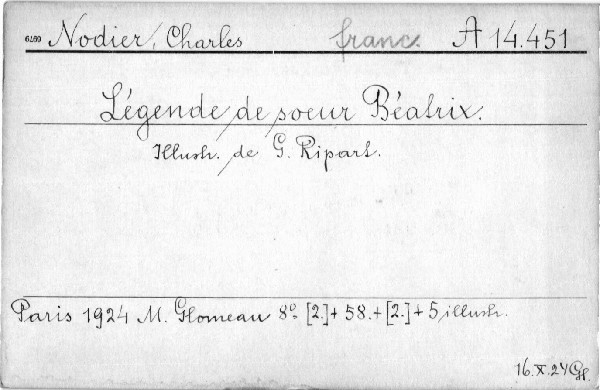 6469 Nodier, Charles franc. A 14.451
Légende de soeur Béatrix.
Illustr. de G. Ripart.
Paris 1924 M. Glomeau 8° [2.]+ 58.+[2.]+5 illustr.
16.X.24